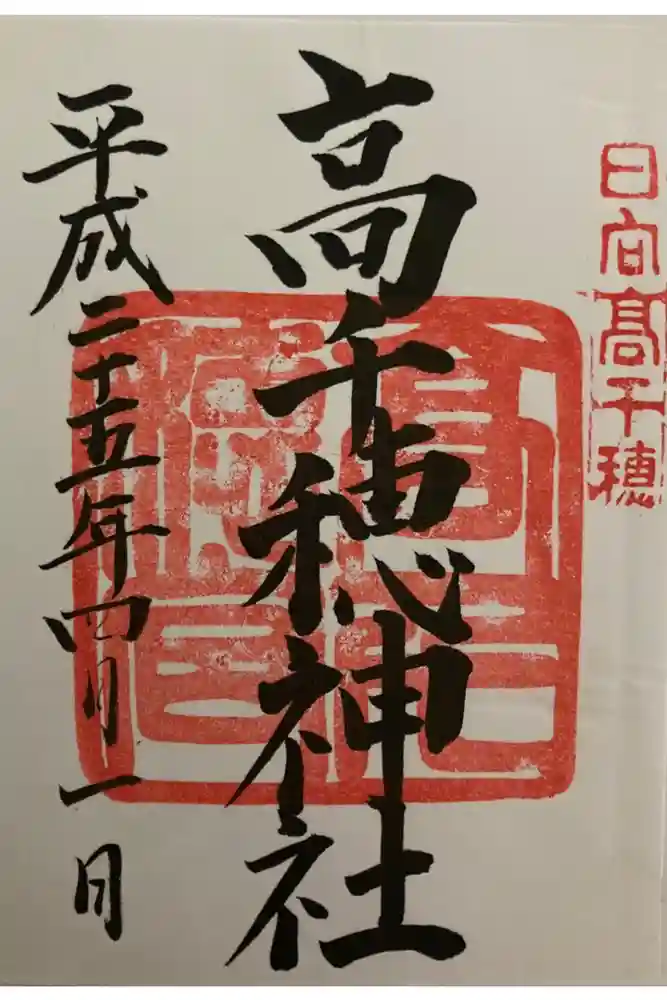 日向高千穂
高千穂神社
平成二十五年四月一日